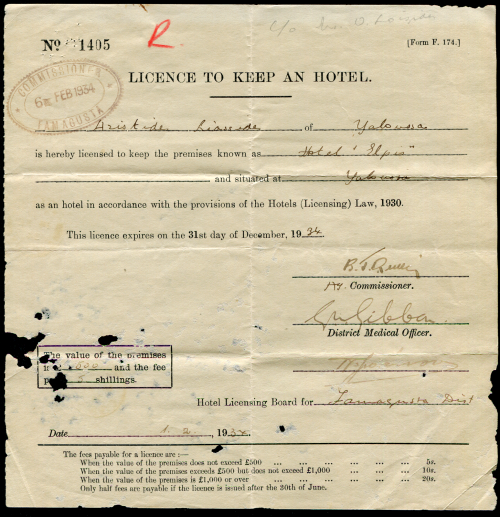 c/o
No 1405 R. [Form F. 174.]
COMMISSIONER
6TH FEB 1934
FAMAGUSTA
LICENCE TO KEEP AN HOTEL.
Aristide of Yaloussa
is hereby licensed to keep the premises known as Hotel "Elpis"
and situated at Yaloussa
as an hotel in accordance with the provisions of the Hotels (Licensing) Law, 1930.
This licence expires on the 31st day of December, 1934.
Commissioner.
District Medical Officer.
The value of the premises
is and the fee
shillings.
Hotel Licensing Board for Famagusta Dist
Date 1. 2. 1934
The fees payable for a licence are :—
When the value of the premises does not exceed £500 ... ... ... ... 5s.
When the value of the premises exceeds £500 but does not exceed £1,000 ... ... 10s.
When the value of the premises is £1,000 or over ... ... ... ... ... 20s.
Only half fees are payable if the licence is issued after the 30th of June.